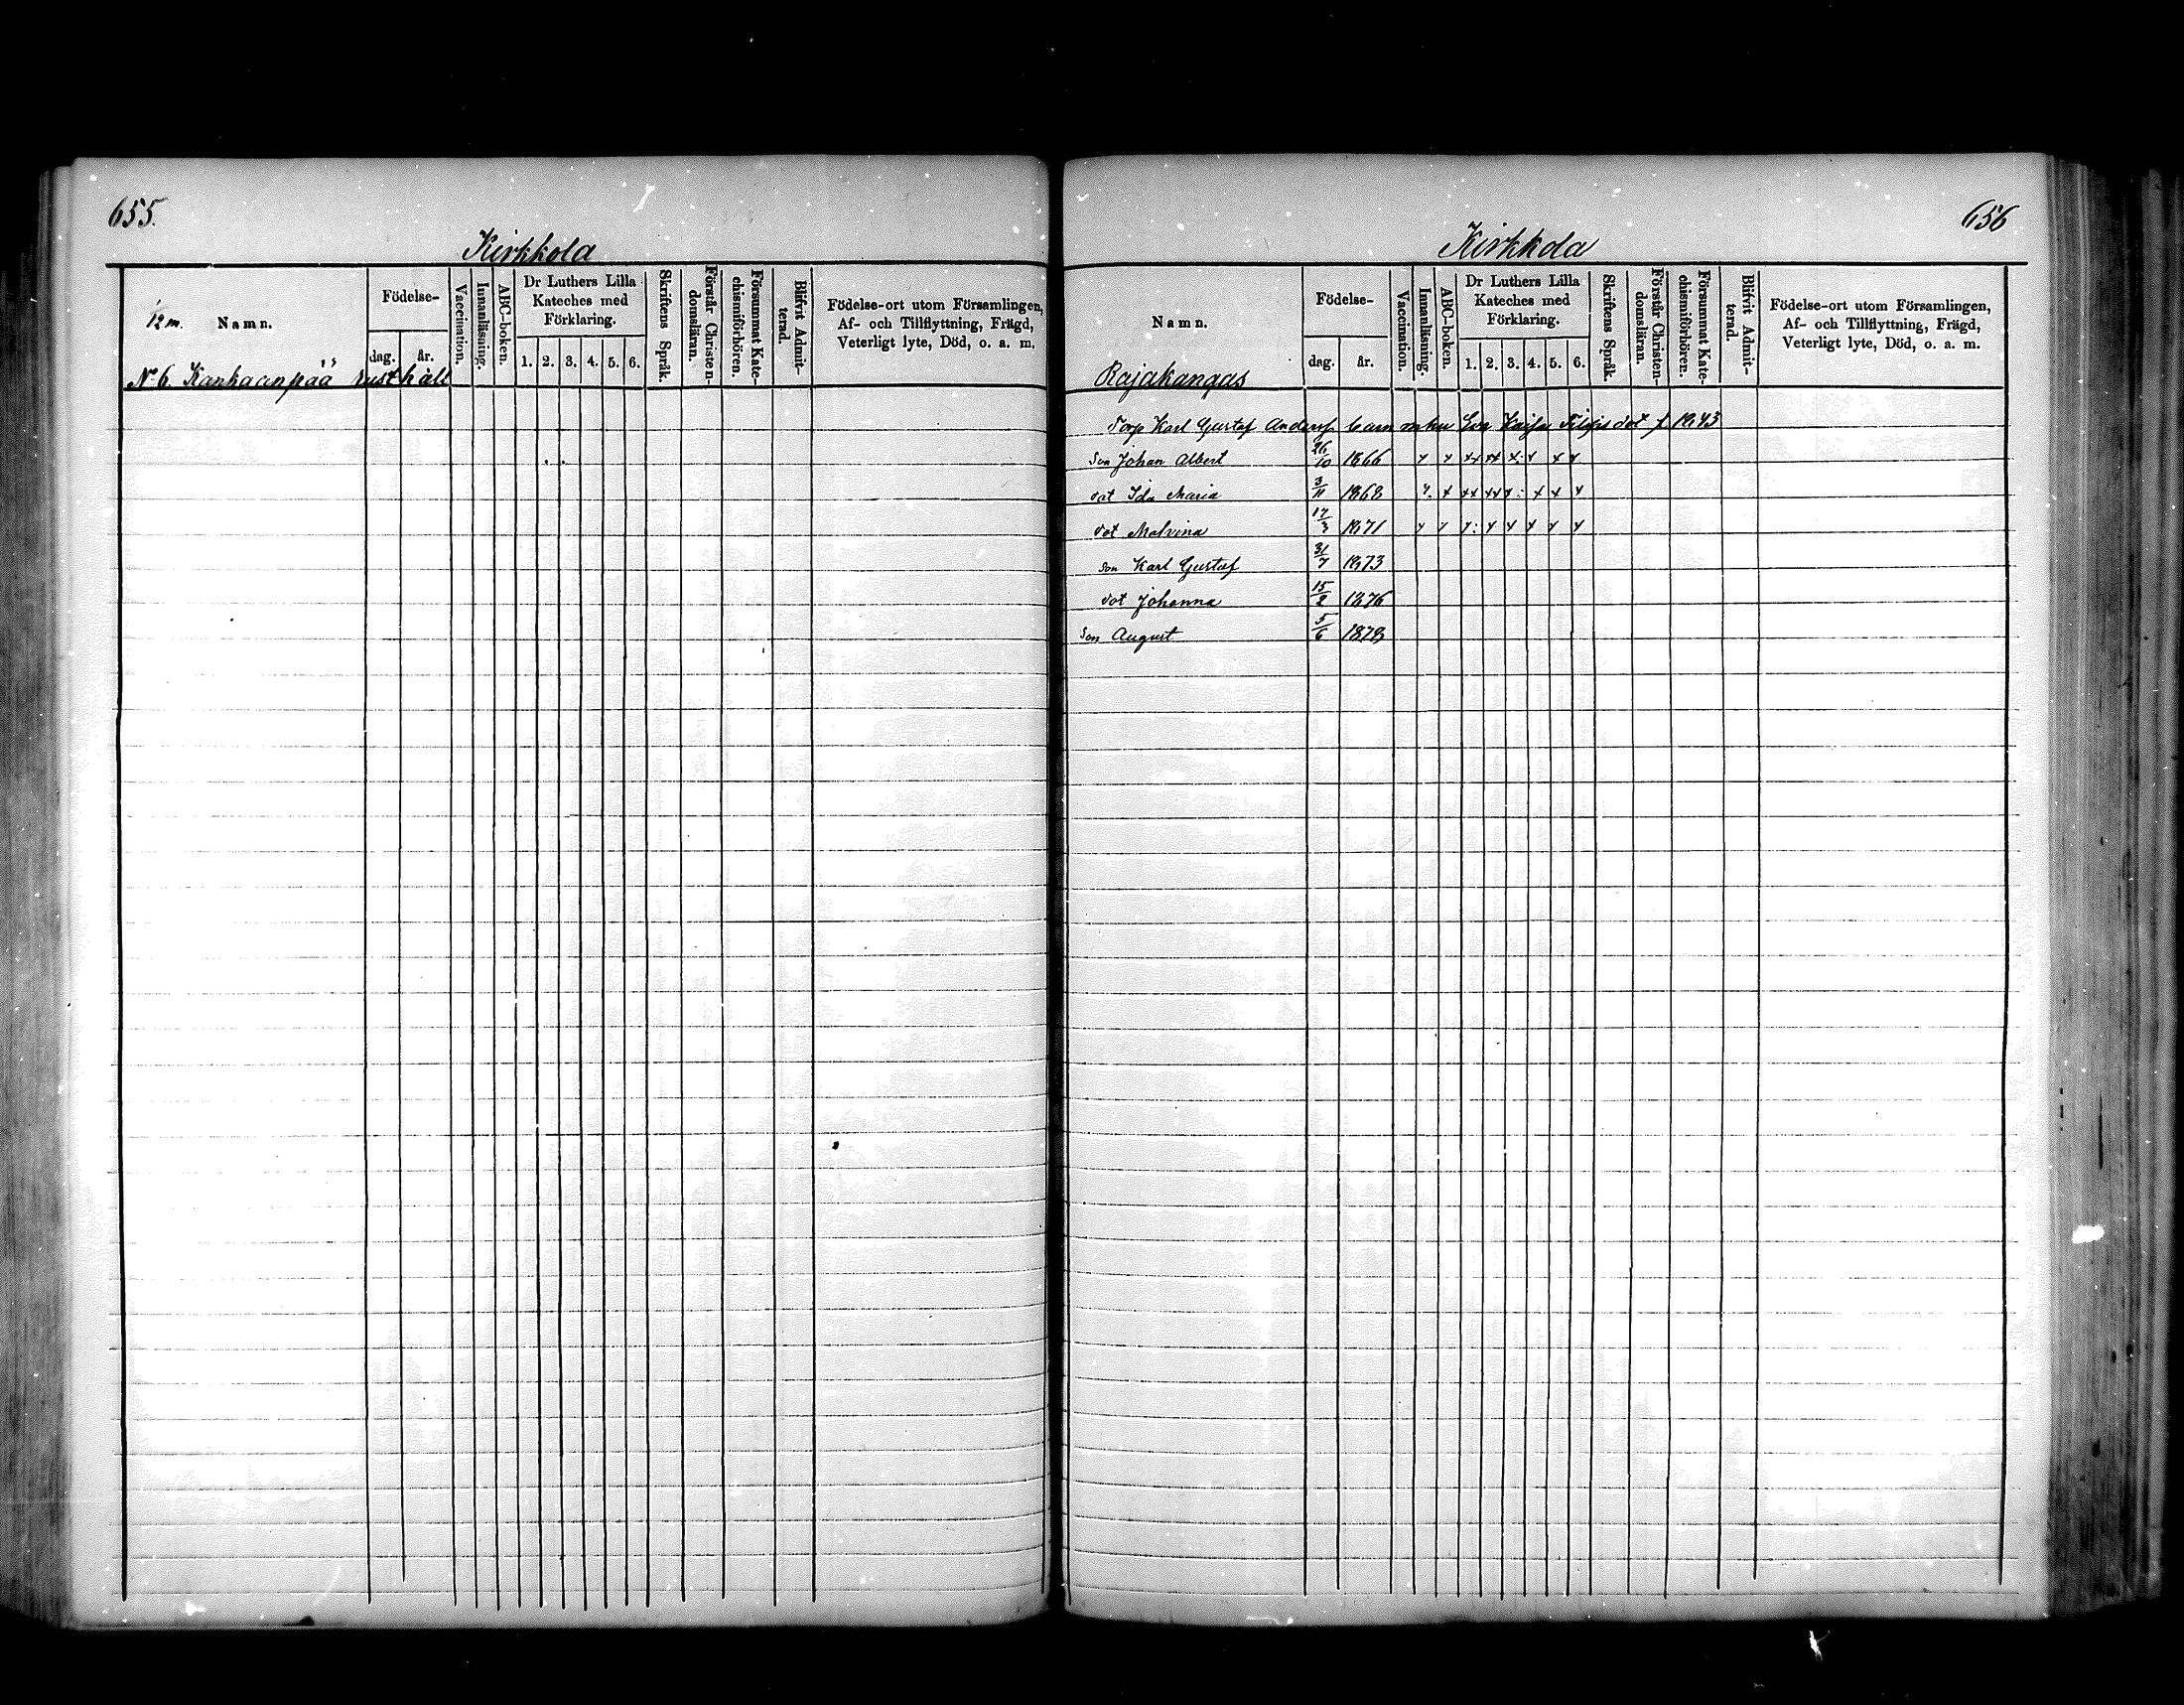 655.
Kirkkola
12 m. Namn.
Födelse-
dag. år.
Vaccination.
Innanläsning.
ABC-boken.
Dr Luthers Lilla
Kateches med
Förklaring.
1. 2. 3. 4. 5. 6.
Skriftens Språk.
Förstår Christen-
domsläran.
Försummat Kate-
chismiförhören.
Blifvit Admit-
terad.
Födelse-ort utom Församlingen,
Af- och Tillflyttning, Frägd,
Veterligt lyte, Död, o. a. m.
No 6. Kankaanpää rusthåll
656
Kirkkola
Namn.
Födelse-
dag. år.
Vaccination.
Innanläsning.
ABC-boken.
Dr Luthers Lilla
Kateches med
Förklaring.
1. 2. 3. 4. 5. 6.
Skriftens Språk.
Förstår Christen-
domsläran.
Försummat Kate-
chismiförhören.
Blifvit Admit-
terad.
Födelse-ort utom Församlingen,
Af- och Tillflyttning, Frägd,
Veterligt lyte, Död, o. a. m.
Rajakangas
Torp Karl Gustaf Anderss barn Eva Kaisa dot f. 1843
Son Johan Albert 26/10 1866
dot Ida Maria 3/11 1868
dot Malvina 17/3 1871
son Karl Gustaf 31/7 1873
dot Johanna 15/2 1876
Son August 5/6 1878